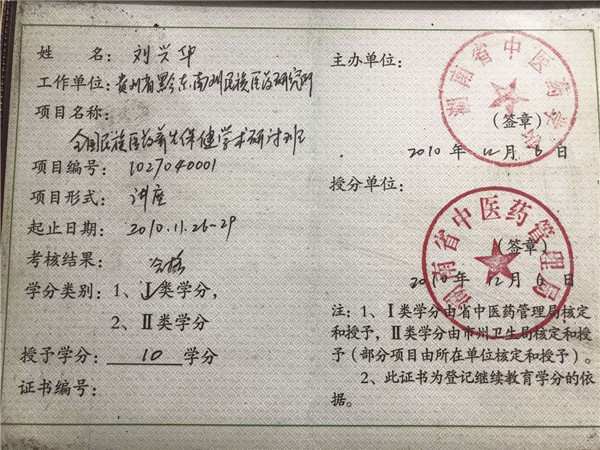 姓 名：刘兴华
工作单位：贵州省黔东南州民族医药研究所
项目名称：
全国民族医药养生保健学术研讨班
项目编号：1027040001
项目形式：讲座
起止日期：2010.11.26-29
考核结果：合格
学分类别：1、Ⅰ类学分，
2、Ⅱ类学分
授予学分：10 学分
证书编号：
主办单位：
湖南省中医药学会
（签章）
2010 年 12 月 6 日
授分单位：
湖南省中医药管理局
（签章）
2010 年 12 月 6 日
注：1、Ⅰ类学分由省中医药管理局核定
和授予，Ⅱ类学分由市州卫生局核定和授
予（部分项目由所在单位核定和授予）。
2、此证书为登记继续教育学分的依
据。